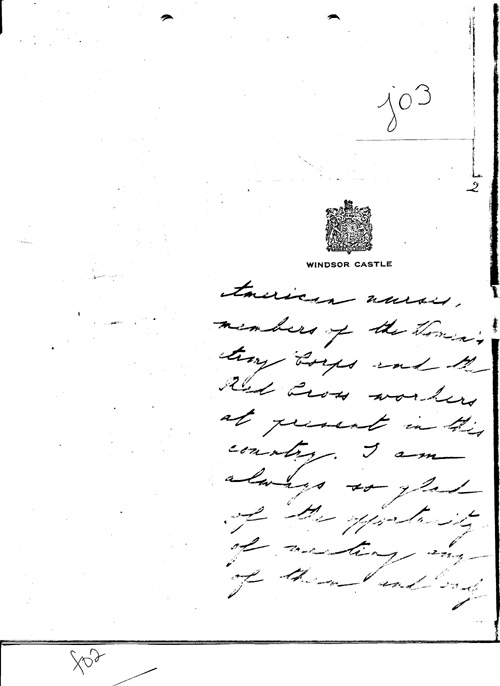 j03
2
WINDSOR CASTLE
American nurses,
members of the Women's
Army Corps and the
Red Cross workers
at present in this
country. I am
always so glad
of the opportunity
of meeting any
of them, and only
f02